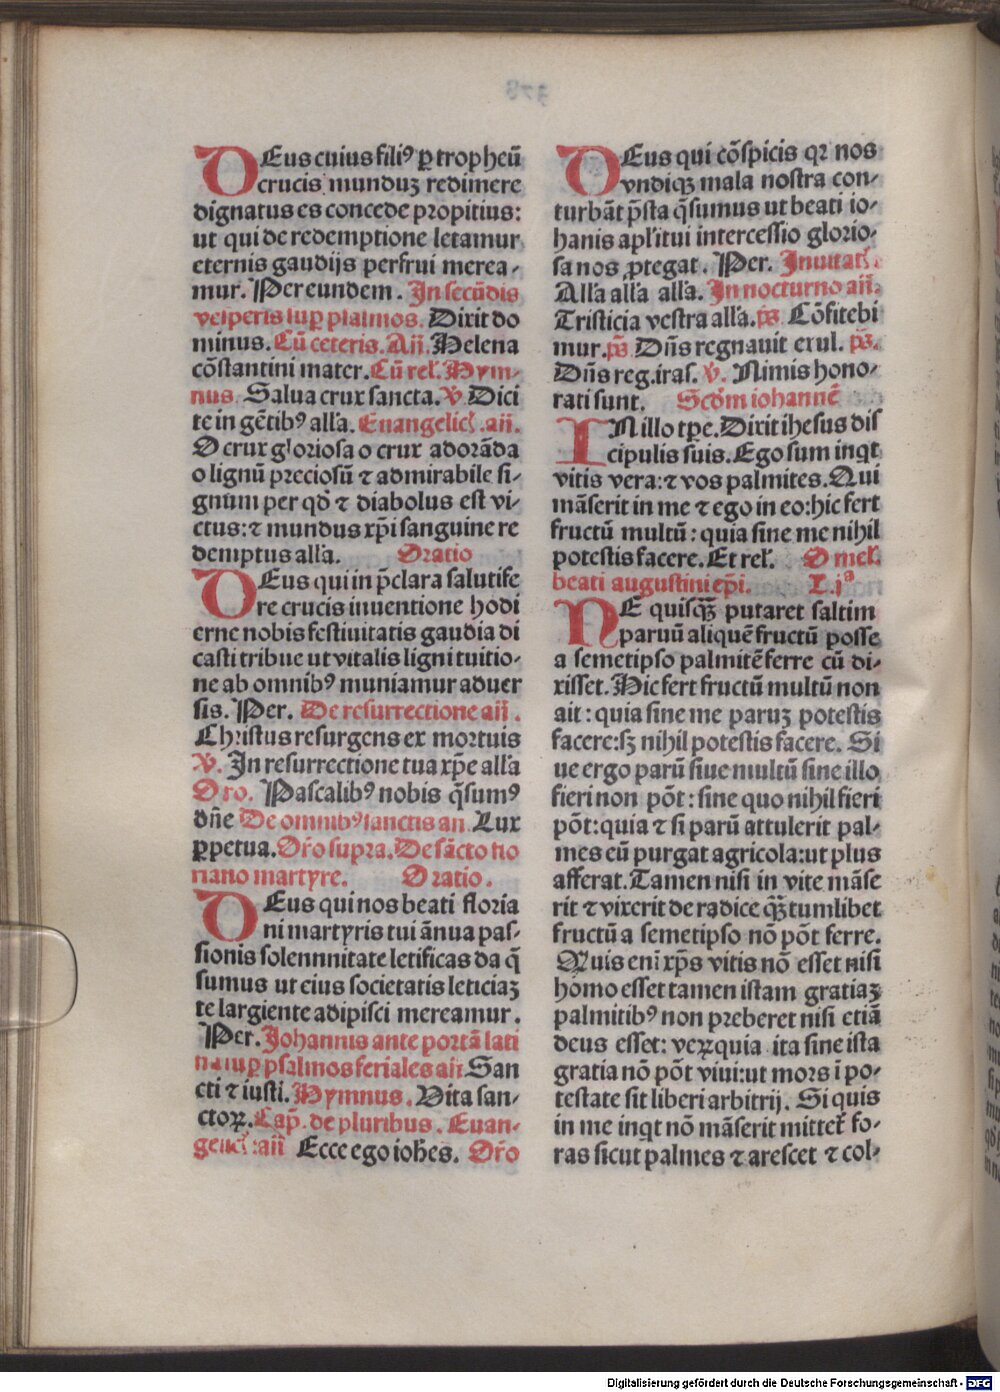 DEus cuius filiꝰ ꝑ tropheū
crucis munduꝫ redimere
dignatus es concede propitius:
ut qui de redemptione letamur
eternis gaudijs perfrui merea-
mur. Per eundem. In secūdis
vesperis suꝑ psalmos. Dixit do
minus. Cū ceteris. Añ. Helena
cōstantini mater. Cū rel'. Hym-
nus. Salua crux sancta. V. Dici
te in gētibꝰ all'a. Euangelic'. añ.
O crux gloriosa o crux adorāda
o lignū preciosū ⁊ admirabile si-
gnum per qd̄ ⁊ diabolus est vi-
ctus: ⁊ mundus xp̄i sanguine re
demptus all'a. Oratio
DEus qui in p̄clara salutife
re crucis inuentione hodi
erne nobis festiuitatis gaudia di
casti tribue ut vitalis ligni tuitio-
ne ab omnibꝰ muniamur aduer
sis. Per. De resurrectione añ.
Christus resurgens ex mortuis
V. In resurrectione tua xp̄e all'a
Oro. Pascalibꝰ nobis q̄sumꝰ
dn̄e De omnibꝰ sanctis an Lux
ꝑpetua. Or̄o supra. De sācto flo
riano martyre. Oratio.
DEus qui nos beati floria
ni martyris tui ānua pas-
sionis solennnitate letificas da q̄
sumus ut eius societatis leticiaꝫ
te largiente adipisci mereamur.
Per. Johannis ante portā lati
nā suꝑ psalmos feriales añ San
cti ⁊ iusti. Hymnus. Vita san-
ctoꝝ. Cap̄. de pluribus. Euan-
gelic' añ Ecce ego ioh̄es. Or̄o
DEus qui cōspicis qꝛ nos
vndiqꝫ mala nostra con-
turbāt p̄sta q̄sumus ut beati io-
hanis apl'i tui intercessio glorio-
sa nos ꝓtegat. Per. Inuitat'
All'a all'a all'a. In nocturno añ.
Tristicia vestra all'a. ps̄ Cōfitebi
mur. ps̄ Dn̄s regnauit exul. ps̄.
Dn̄s reg. iras. V. Nimis hono-
rati sunt. Scd̄m iohannē
IN illo tp̄e. Dixit ihesus dis
cipulis suis. Ego sum inqt
vitis vera: ⁊ vos palmites. Qui
māserit in me ⁊ ego in eo: hic fert
fructū multū: quia sine me nihil
potestis facere. Et rel'. Omel'.
beati augustini ep̄i. L. jᵃ
NE quisqꝫ̄ putaret saltim
paruū aliquē fructū posse
a semetipso palmitē ferre cū di-
xisset. Hic fert fructū multū non
ait: quia sine me paruꝫ potestis
facere: sꝫ nihil potestis facere. Si
ue ergo parū siue multū sine illo
fieri non pōt: sine quo nihil fieri
pōt: quia ⁊ si parū attulerit pal-
mes eū purgat agricola: ut plus
afferat. Tamen nisi in vite māse
rit ⁊ vixerit de radice qꝫ̄tumlibet
fructū a semetipso nō pōt ferre.
Quis eni xp̄s vitis nō esset nisi
homo esset tamen istam gratiaꝫ
palmitibꝰ non preberet nisi etiā
deus esset: veꝝ quia ita sine ista
gratia nō pōt viui: ut mors ī po-
testate sit liberi arbitrij. Si quis
in me inqt nō māserit mittet' fo-
ras sicut palmes ⁊ arescet ⁊ col-
Digitalisierung gefördert durch die Deutsche Forschungsgemeinschaft - DFG